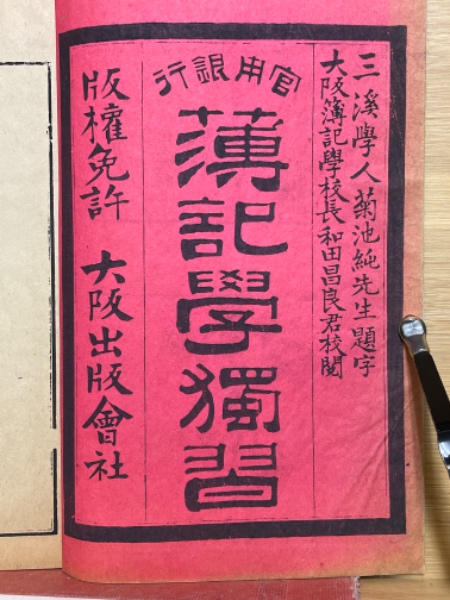 三溪學人菊池純先生題字
大阪簿記學校長和田昌良君校閲
官用銀行
簿記學獨習
版權免許 大阪出版會社